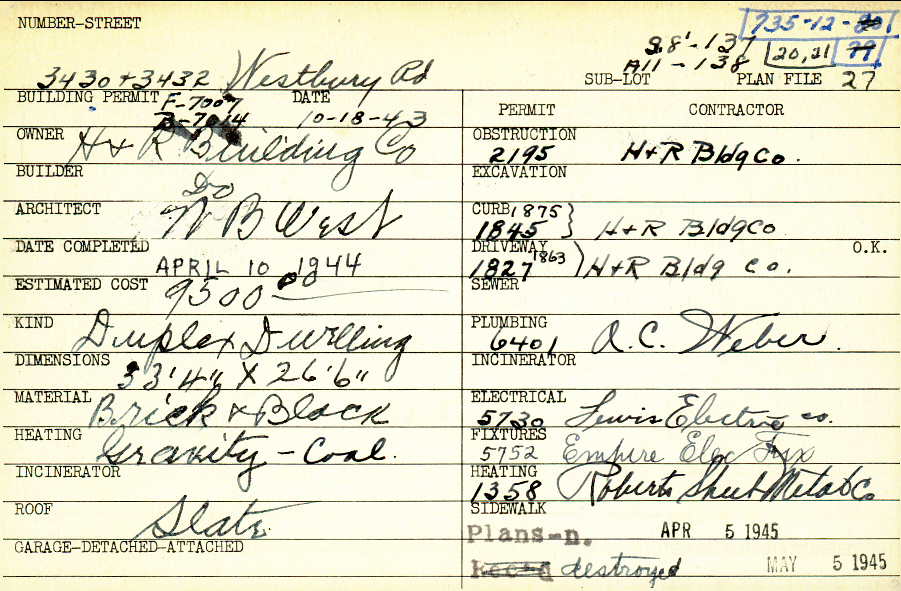 NUMBER-STREET
735-12-80
S.8'-137
20,21 79
A11-138
3430+3432 Westbury Rd
SUB-LOT PLAN FILE 27
BUILDING PERMIT F-7007 DATE
B-7014 10-18-43
PERMIT CONTRACTOR
OWNER H+R Building Co
OBSTRUCTION
2195 H+R Bldg Co.
BUILDER Do
EXCAVATION
ARCHITECT W B West
CURB 1875
1845 } H+R Bldg Co
DATE COMPLETED APRIL 10 1944
DRIVEWAY O.K.
1827 1863 ) H+R Bldg Co.
ESTIMATED COST 9500 00
SEWER
KIND Duplex Dwelling
PLUMBING
6401 A.C. Weber.
DIMENSIONS 33'4" X 26'6"
INCINERATOR
MATERIAL Brick & Block
ELECTRICAL
5730 Lewis Electric co.
HEATING Gravity - Coal.
FIXTURES
5752 Empire Elec Fix
INCINERATOR
HEATING
1358 Roberts Sheet Metal Co
ROOF Slate
SIDEWALK
Plans-n. APR 5 1945
GARAGE-DETACHED-ATTACHED
destroyed MAY 5 1945